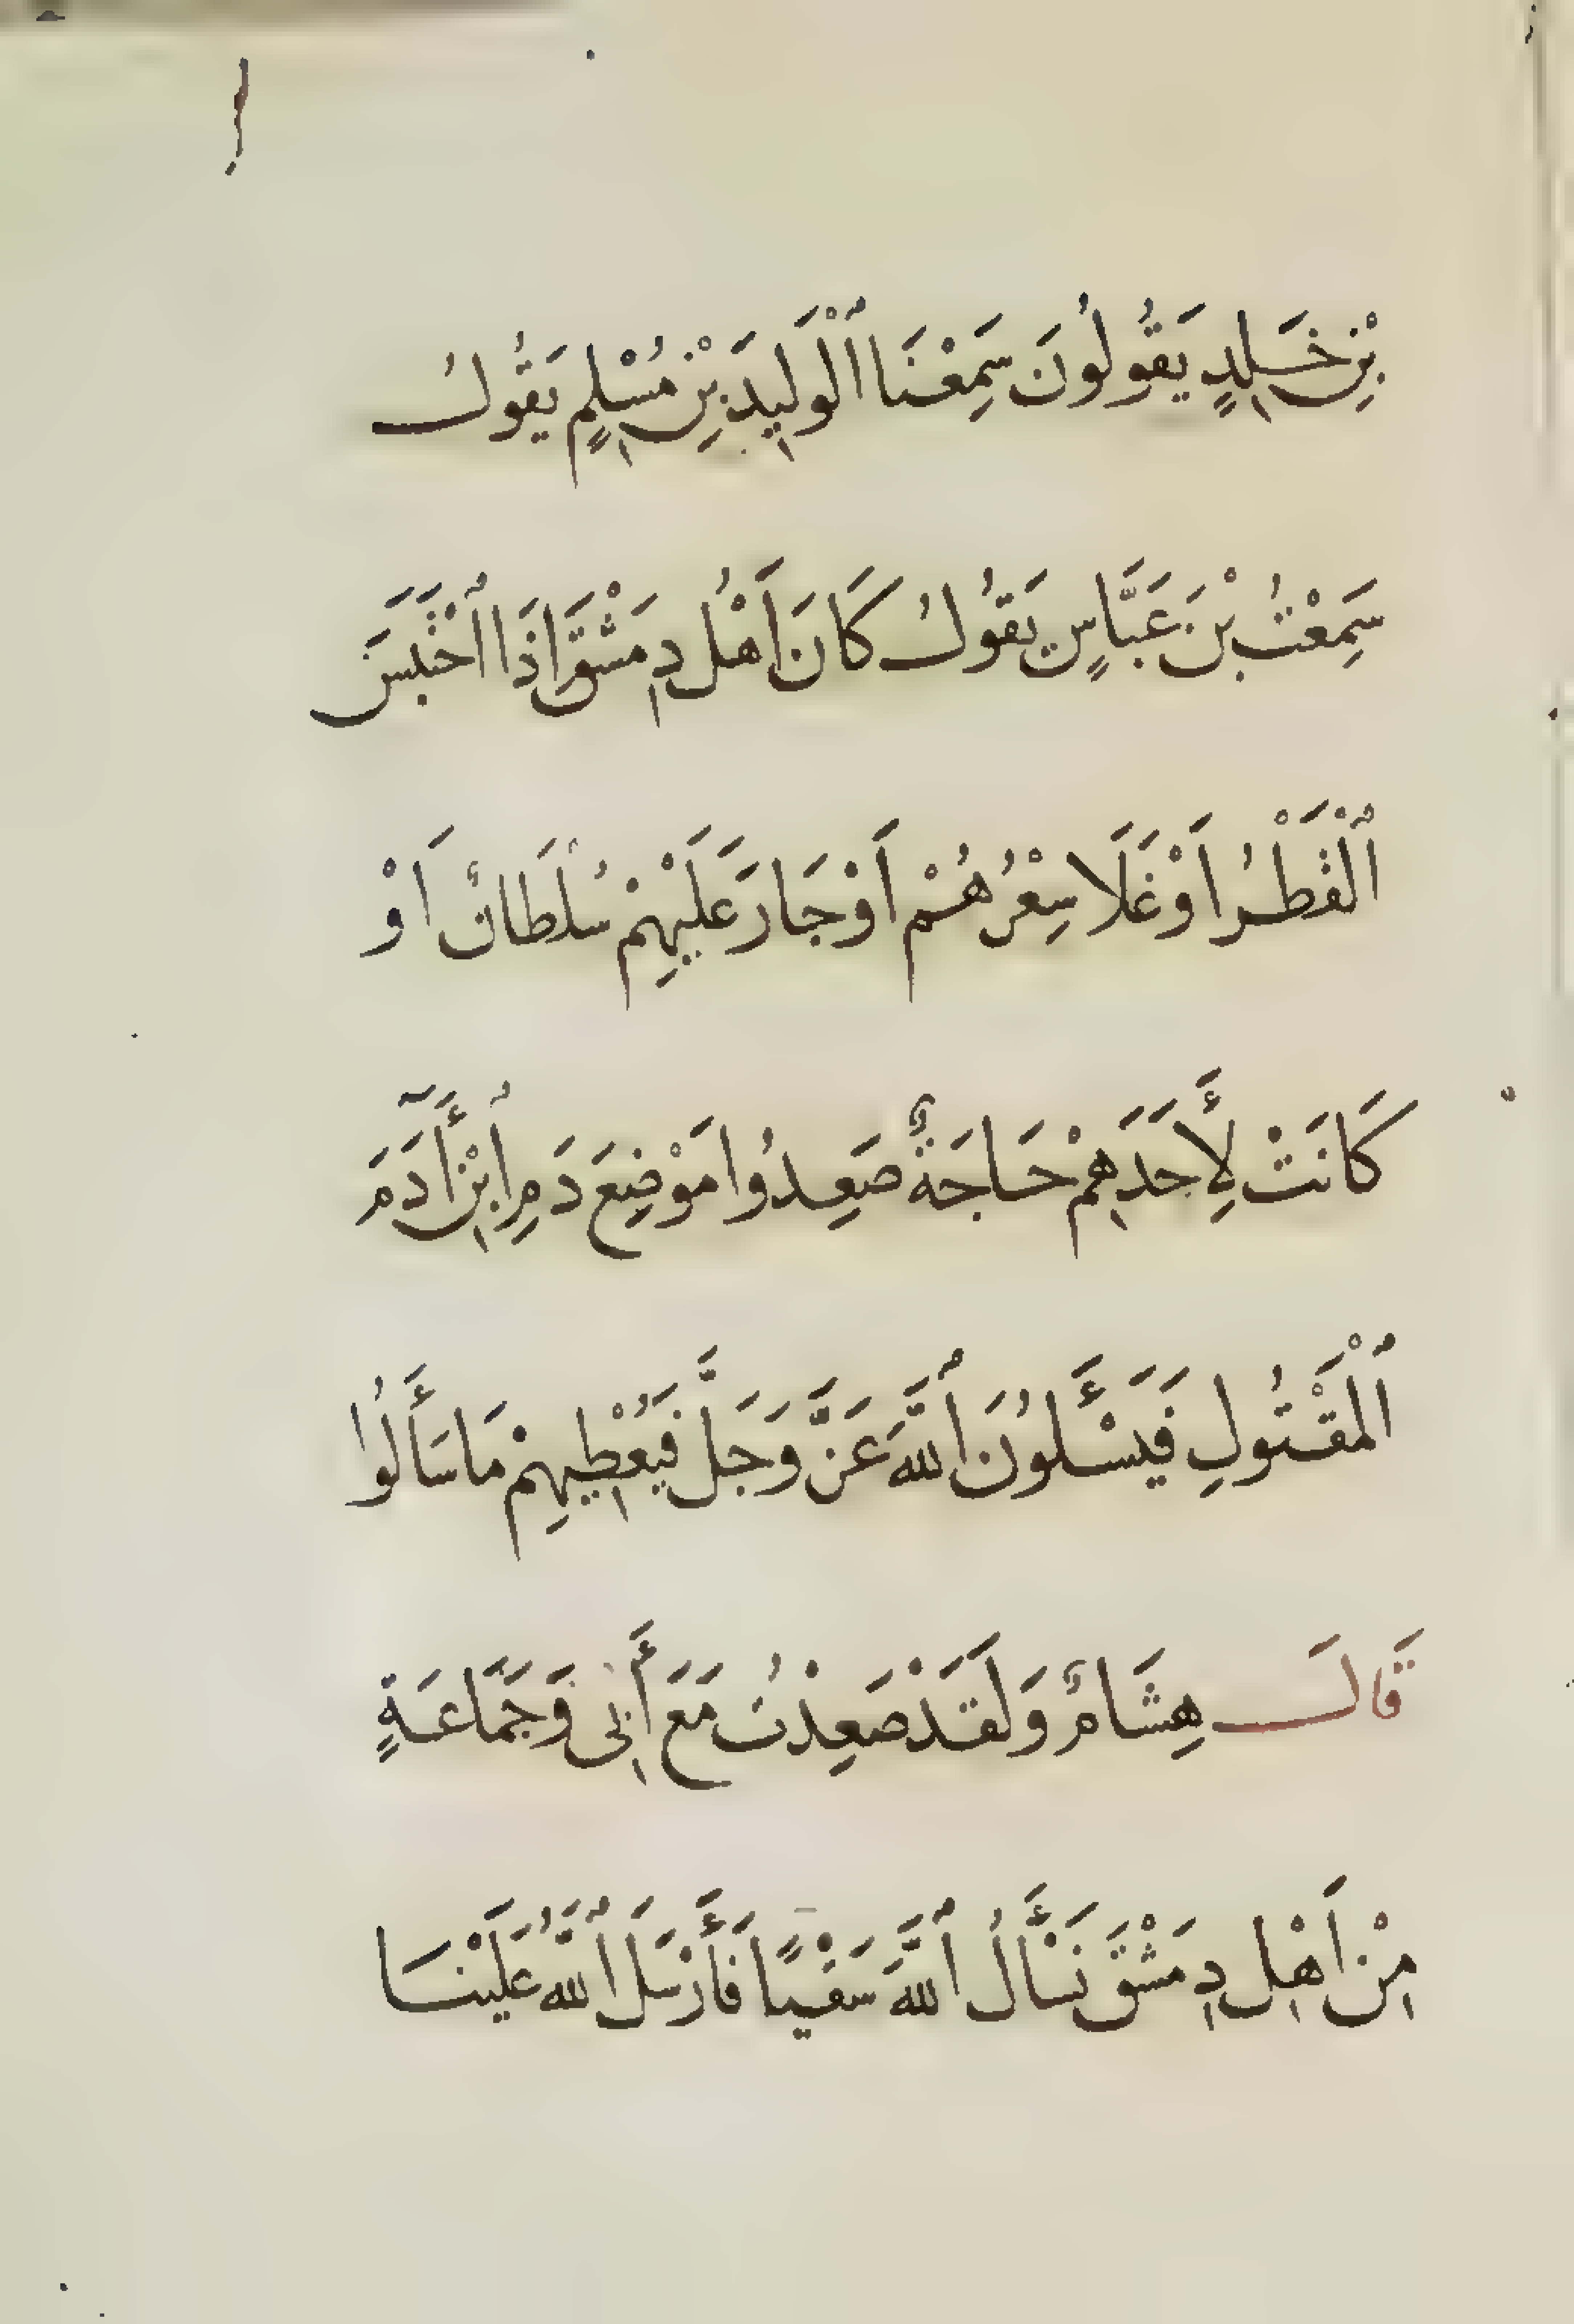 بْنِ خَـلِدٍ يَقُولُونَ سَمِعْنَا ٱلْوَلِيدَ بْنِ مُسْلِمٍ يَقُولُ
سَمِعْتُ بْنَ عَبَّاسٍ يَقُولُ كَانَ اَهْلُ دِمَشْقَ اِذَا ٱحْتَبَسَ
ٱلْقَطْرُ اَوْ غَلَا سِعْرُهُمْ اَوْ جَارَ عَلَيْهِمْ سُلْطَانٌ اَوْ
كَانَتْ لِأَحَدَهِمْ حَاجَةٌ صَعِدُوا مَوْضِعَ دَمِ ابْنِ أَدَمَ
ٱلْمَقْتُولِ فَيَسْـَٔلُونَ ٱللَّهَ عَزَّ وَجَلَّ فَيُعْطِيهِمْ مَا سَأَلُوا
قَالَ هِشَامٌ وَلَقَدْ صَعِدْتُ مَعَ أَبِى وَجَمَاعَةٍ
مِنْ اَهْلِ دِمَشْقَ نَسْأَلُ ٱللَّهَ سَقْيًا فَأَرْسَلَ ٱللَّهُ عَلَيْنَا